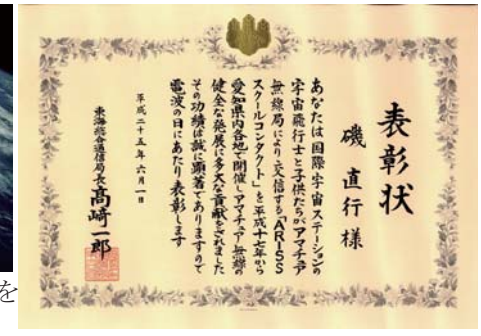 表彰状
磯直行様
あなたは国際宇宙ステーションの
宇宙飛行士と子供たちがアマチュア
無線局により交信する「ARISS
スクールコンタクト」を平成十七年から
愛知県内各地で開催しアマチュア無線の
健全な発展に多大な貢献をされました
その功績は誠に顕著でありますので
電波の日にあたり表彰します
平成二十五年六月一日
東海総合通信局長高崎一郎
を